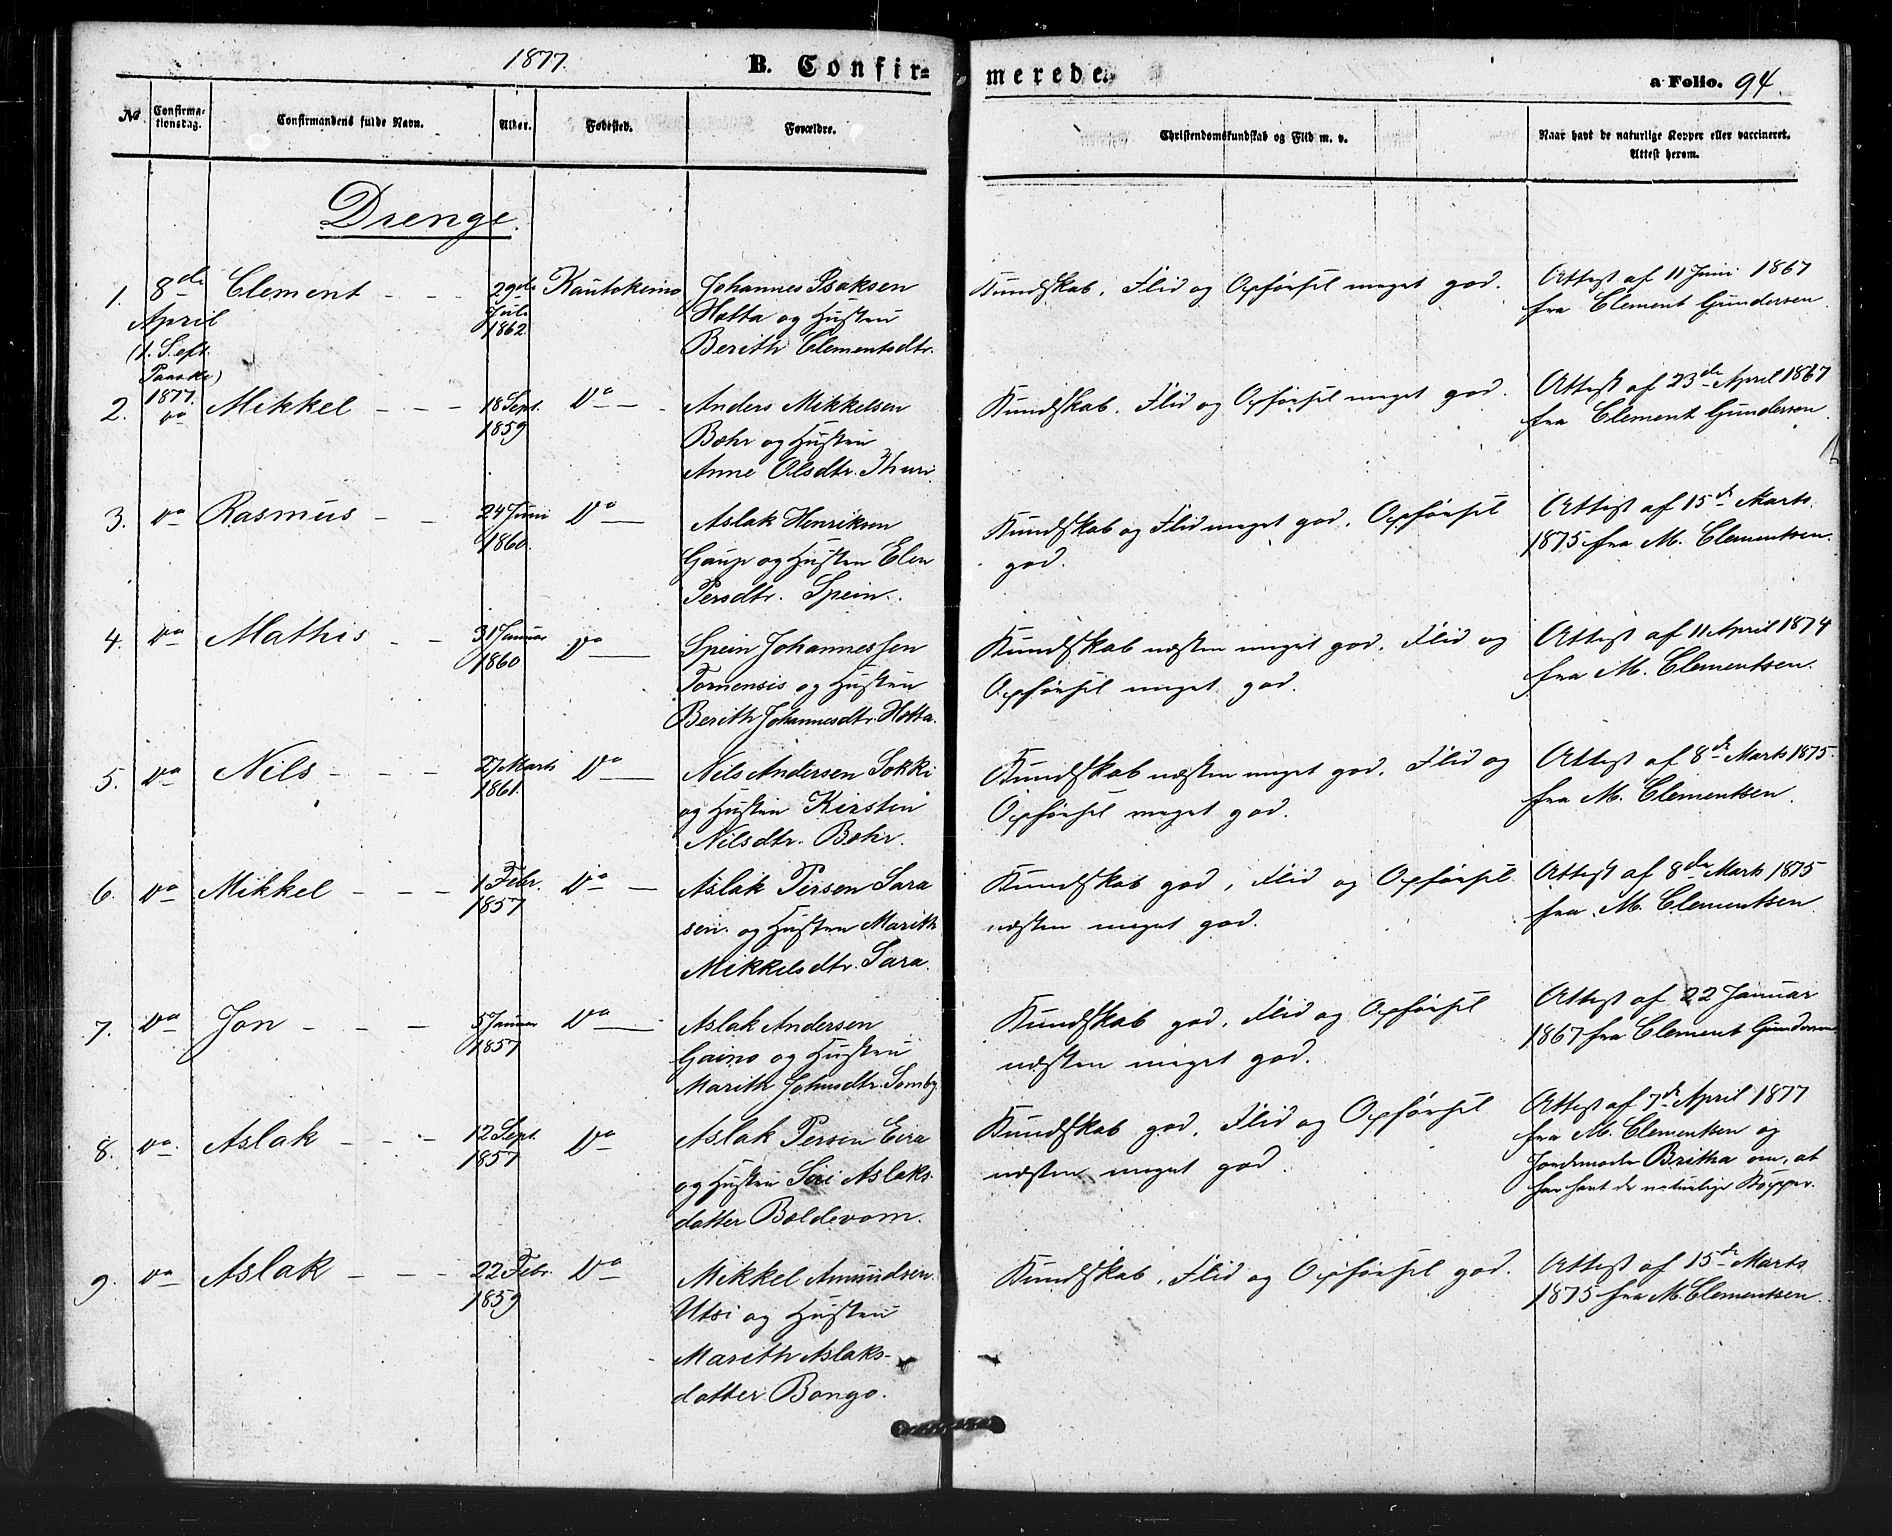 1877. B. Confir= merede. a Folio. 94.
No Confirma-tionsdag. Confirmandens fulde Navn. Alder. Fødested. Forældre. Christendomskundskab og Flid m. v. Naar havt de naturlige Kopper eller vaccineret. Attest herom.
Drenge.
1. 8de April (1. S. eft. Paaske) 1877. Clement - - - 29de Juli 1862 Kautokeino Johannes Isaksen
Hætta og Hustru
Berith Clementsdtr.
Kundskab, Flid og Opførsel meget god.
Attest af 11 Juni 1867
fra Clement Gundersen
2. Do Mikkel - - - 18 Sept. 1859 Do Anders Mikkelsen
Bæhr og Hustru
Anne Olsdtr. Thuri.
Kundskab, Flid og Opførsel meget god.
Attest af 23de April 1867
fra Clement Gundersen
3. Do Rasmus - - 24 Juni 1860. Do Aslak Henriksen
Gaup og Hustru Elen
Persdtr. Spein.
Kundskab og Flid meget god. Opførsel
god.
Attest af 15de Marts
1875 fra M. Clementsen.
4. Do Mathis - - 31 Januar 1860 Do Spein Johannessen
Tornensis og Hustru
Berith Johannesdtr. Hætta.
Kundskab næsten meget god. Flid og
Opførsel meget god.
Attest af 11 April 1874
fra M. Clementsen.
5. Do Nils - - - 27 Marts 1861. Do Nils Andersen Sokki
og Hustru Kirsten
Nilsdtr. Bæhr.
Kundskab næsten meget god. Flid og
Opførsel meget god.
Attest af 8de Marts 1875
fra M. Clementsen.
6. Do Mikkel - - - 1 Febr. 1857 Do Aslak Persen Sara
sen. og Hustru Marith
Mikkelsdtr. Sara.
Kundskab god, Flid og Opførsel
næsten meget god.
Attest af 8de Marts 1875
fra M. Clementsen.
7. Do Jon - - - 5 Januar 1857 Do Aslak Andersen
Gaino og Hustru
Marith Johnsdtr. Somby
Kundskab god, Flid og Opførsel
næsten meget god.
Attest af 22 Januar
1867 fra Clement Gundersen
8. Do Aslak - - - 12 Sept. 1857 Do Aslak Persen Eira
og Hustru Siri Aslaks-
datter Boldevom.
Kundskab god, Flid og Opførsel
næsten meget god.
Attest af 7de April 1877
fra M. Clementsen og
Jordemoder Britha om, at
han havt de naturlige Kopper.
9. Do Aslak - - - 22 Febr. 1859 Do Mikkel Amundsen
Utsi og Hustru
Marith Aslaks-
datter Bongo.
Kundskab, Flid og Opførsel god.
Attest af 15de Marts
1875 fra M. Clementsen.